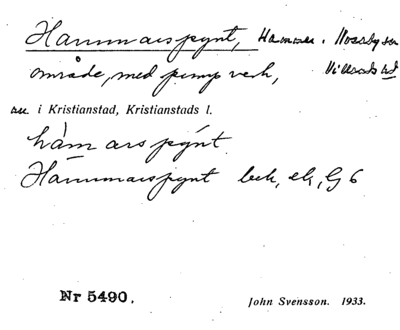 Hammarspynt, Hammar. Mossbysm
område, med pumpverk, Villands hd
i Kristianstad, Kristianstads l.
hàmarspýnt
Hammarspynt bek, ek, Lj 6
Nr 5490. John Svensson. 1933.